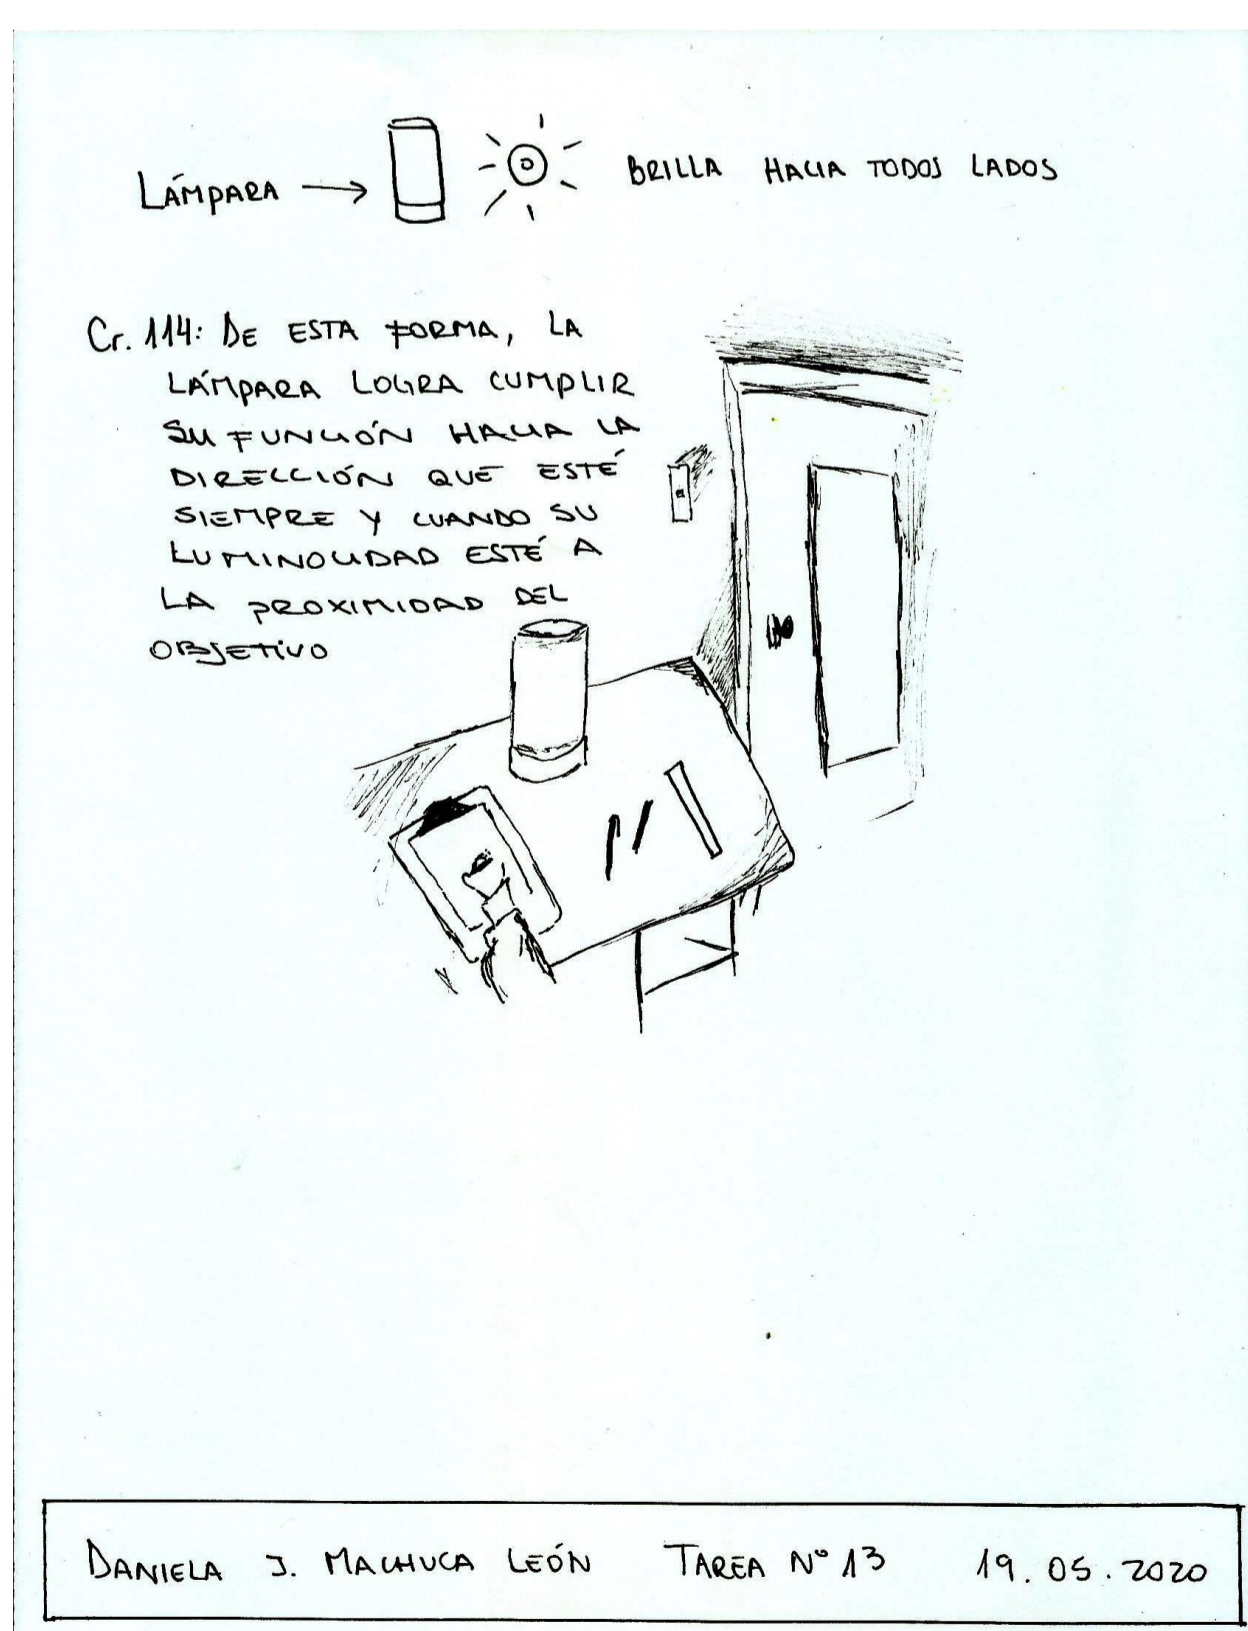 LÁMPARA → BRILLA HACIA TODOS LADOS
Cr. 114: DE ESTA FORMA, LA
LÁMPARA LOGRA CUMPLIR
SU FUNCIÓN HACIA LA
DIRECCIÓN QUE ESTÉ
SIEMPRE Y CUANDO SU
LUMINOCIDAD ESTÉ A
LA PROXIMIDAD DEL
OBJETIVO
DANIELA J. MACHUCA LEÓN TAREA N° 13 19.05.2020